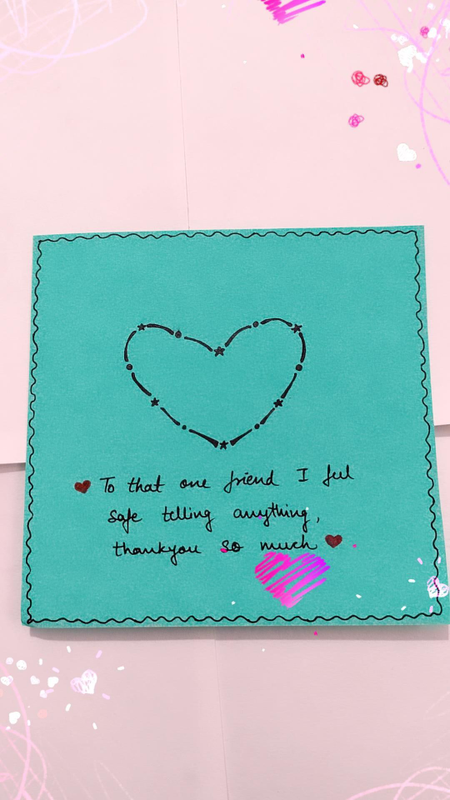 To that one friend I feel
safe telling anything,
thankyou so much